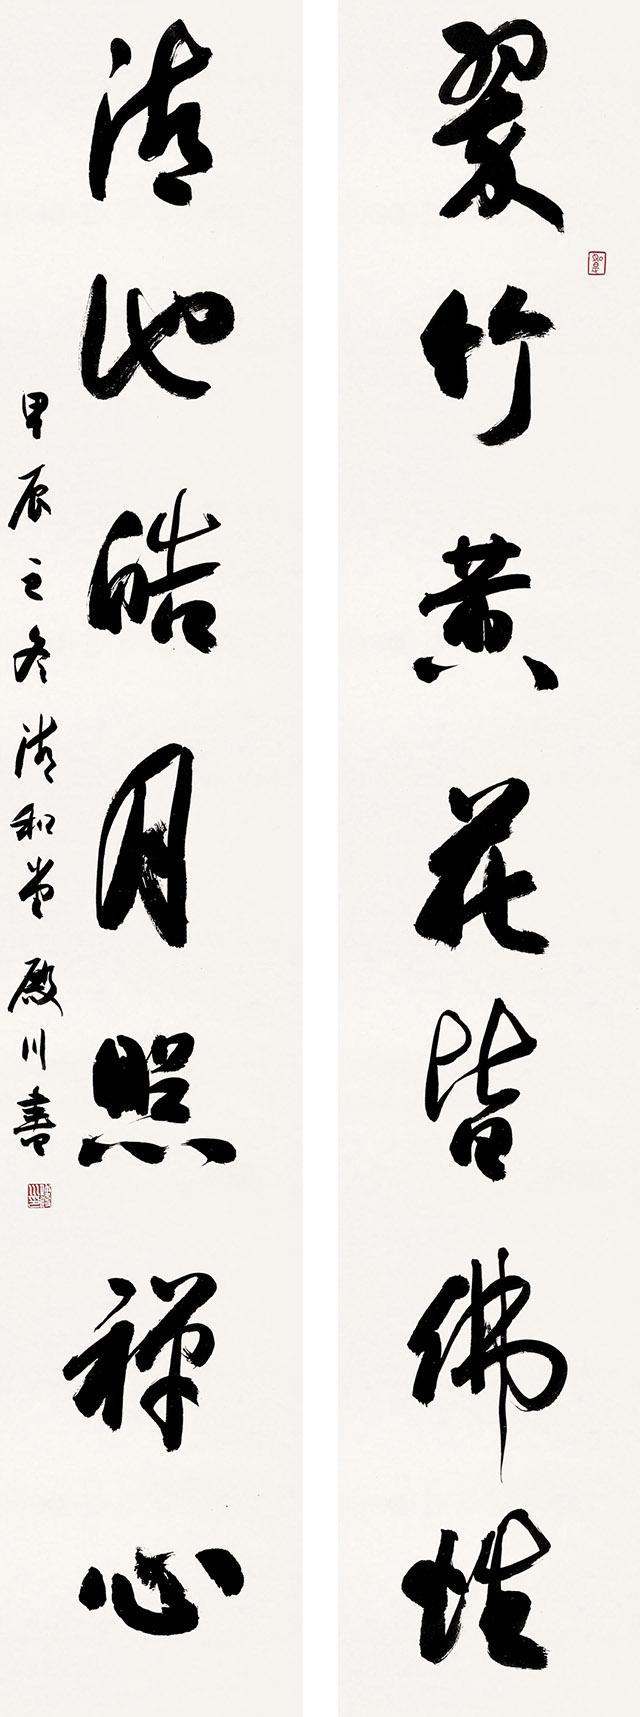 翠竹黄花皆佛性
清池皓月照禅心
甲辰之冬清和堂殿川书